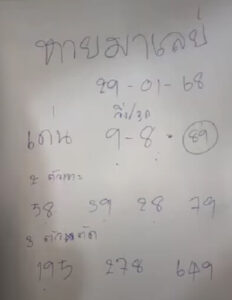 ทายมาเลย์
29-01-68
วิ่ง/รูด
เด่น 9-8. 89
2 ตัวเจาะ
58 59 28 79
3 ตัวชุด
195 278 649